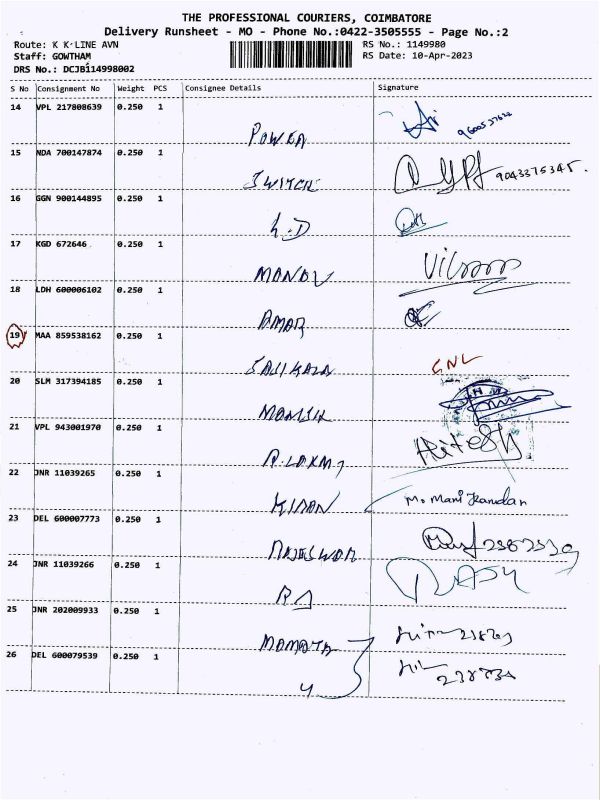 THE PROFESSIONAL COURIERS, COIMBATORE
Delivery Runsheet - MO - Phone No.:0422-3505555 - Page No.:2
Route: K K-LINE AVN
RS No.: 1149980
Staff: GOWTHAM
RS Date: 10-Apr-2023
DRS No.: DCJB114998002
S No Consignment No Weight PCS Consignee Details Signature
14 VPL 217808639 0.250 1
POWER
15 NDA 700147874 0.250 1
SWITCH 9043375345.
16 GGN 900144895 0.250 1
G.D
17 KGD 672646 0.250 1
MANAV
18 LDH 600006102 0.250 1
AMAR
19 MAA 859538162 0.250 1
SASIKALA
20 SLM 317394185 0.250 1
MANISH
21 VPL 943001970 0.250 1
R.LAXMI Hitesh
22 JNR 11039265 0.250 1
KIRAN M. Mani Kandan
23 DEL 600007773 0.250 1
RAJESWAR
24 JNR 11039266 0.250 1
RJ
25 JNR 202009933 0.250 1
MAMATA
26 DEL 600079539 0.250 1